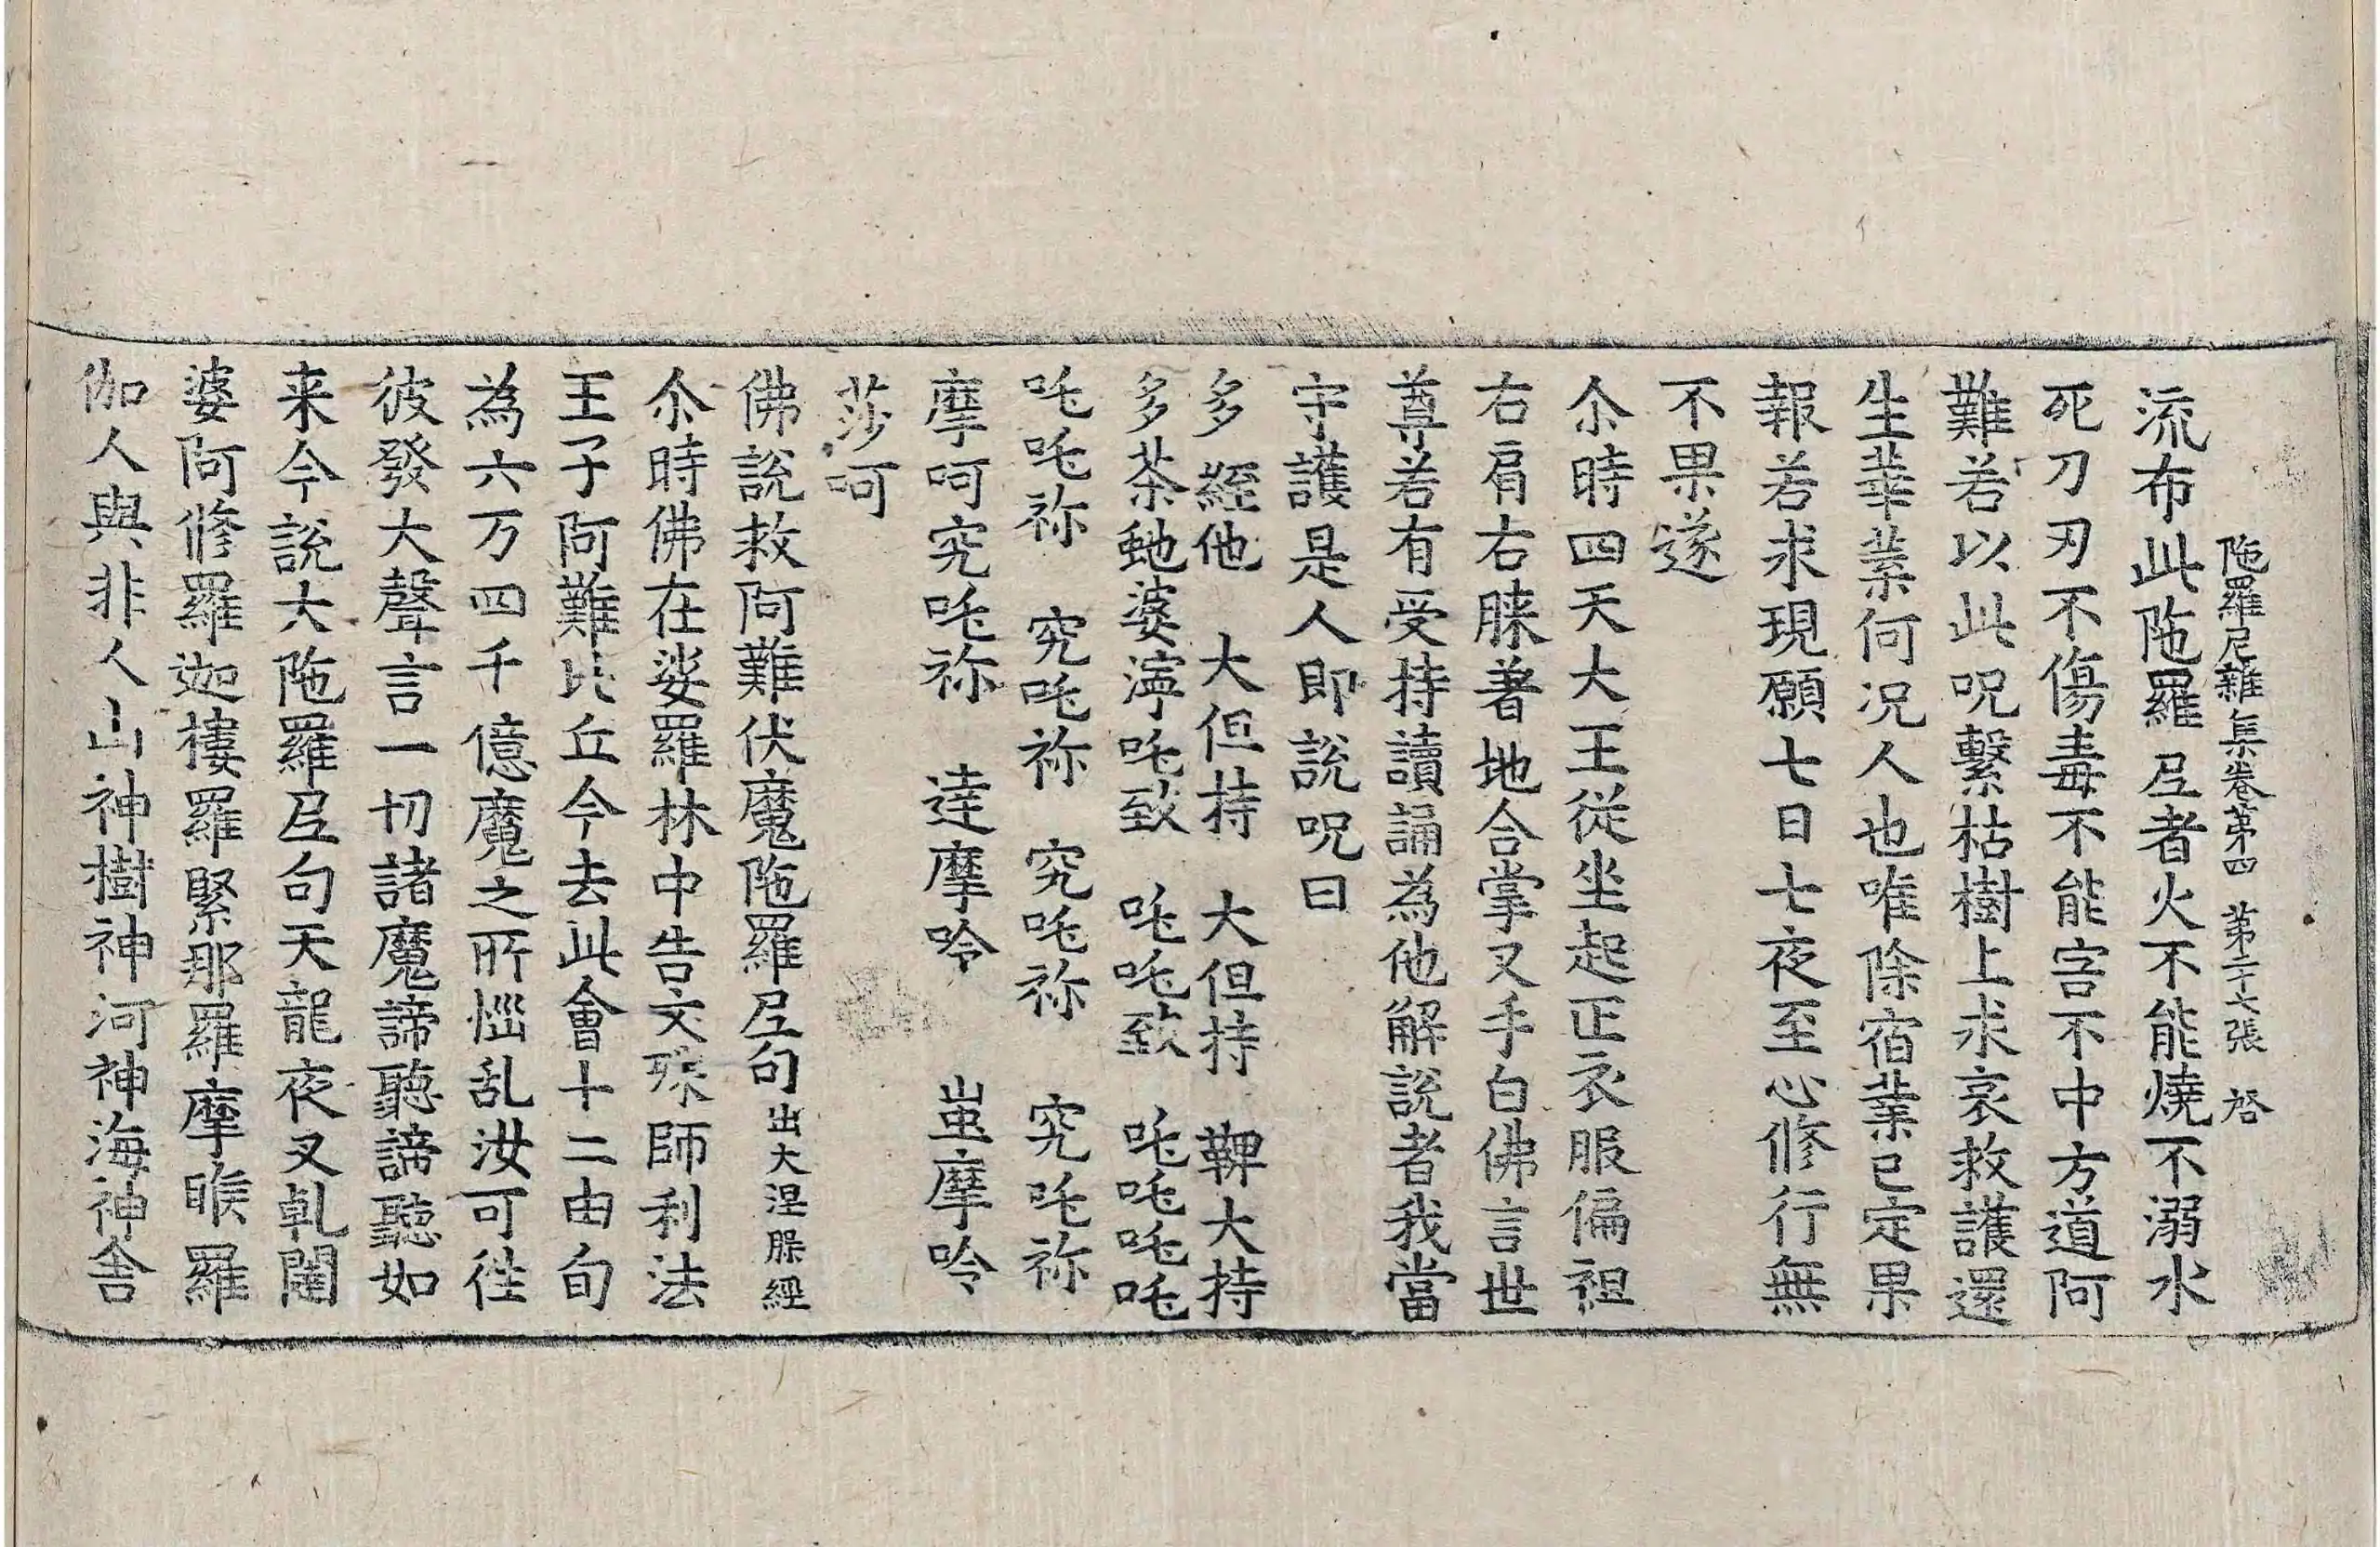 陁羅尼雜集卷第四 第二十七張 啓
流布此陁羅𡰱者火不能燒不溺水
死刀刃不傷毒不能害不中方道阿
難若以此呪繫枯樹上求哀救護還
生華葉何況人也唯除宿業已定果
報若求現願七日七夜至心修行無
不果遂
尒時四天大王從坐起正衣服偏袒
右肩右膝著地合掌叉手白佛言世
尊若有受持讀誦為他解說者我當
守護是人即說呪曰
多 絰他 大但持 大但持 鞞大持
多茶虵婆濘吒致 吒吒致 吒吒吒吒
吒吒祢 究吒祢 究吒祢 究吒祢
摩呵究吒祢 達摩呤 蚩摩呤
莎呵
佛說救阿難伏魔陁羅𡰱句 出大涅槃經
尒時佛在娑羅林中告文殊師利法
王子阿難比丘今去此會十二由旬
為六万四千億魔之所惱乱汝可徃
彼發大聲言一切諸魔諦聽諦聽如
来今說大陁羅𡰱句天龍夜叉乹闥
婆阿修羅迦樓羅緊那羅摩睺羅
伽人與非人山神樹神河神海神舍